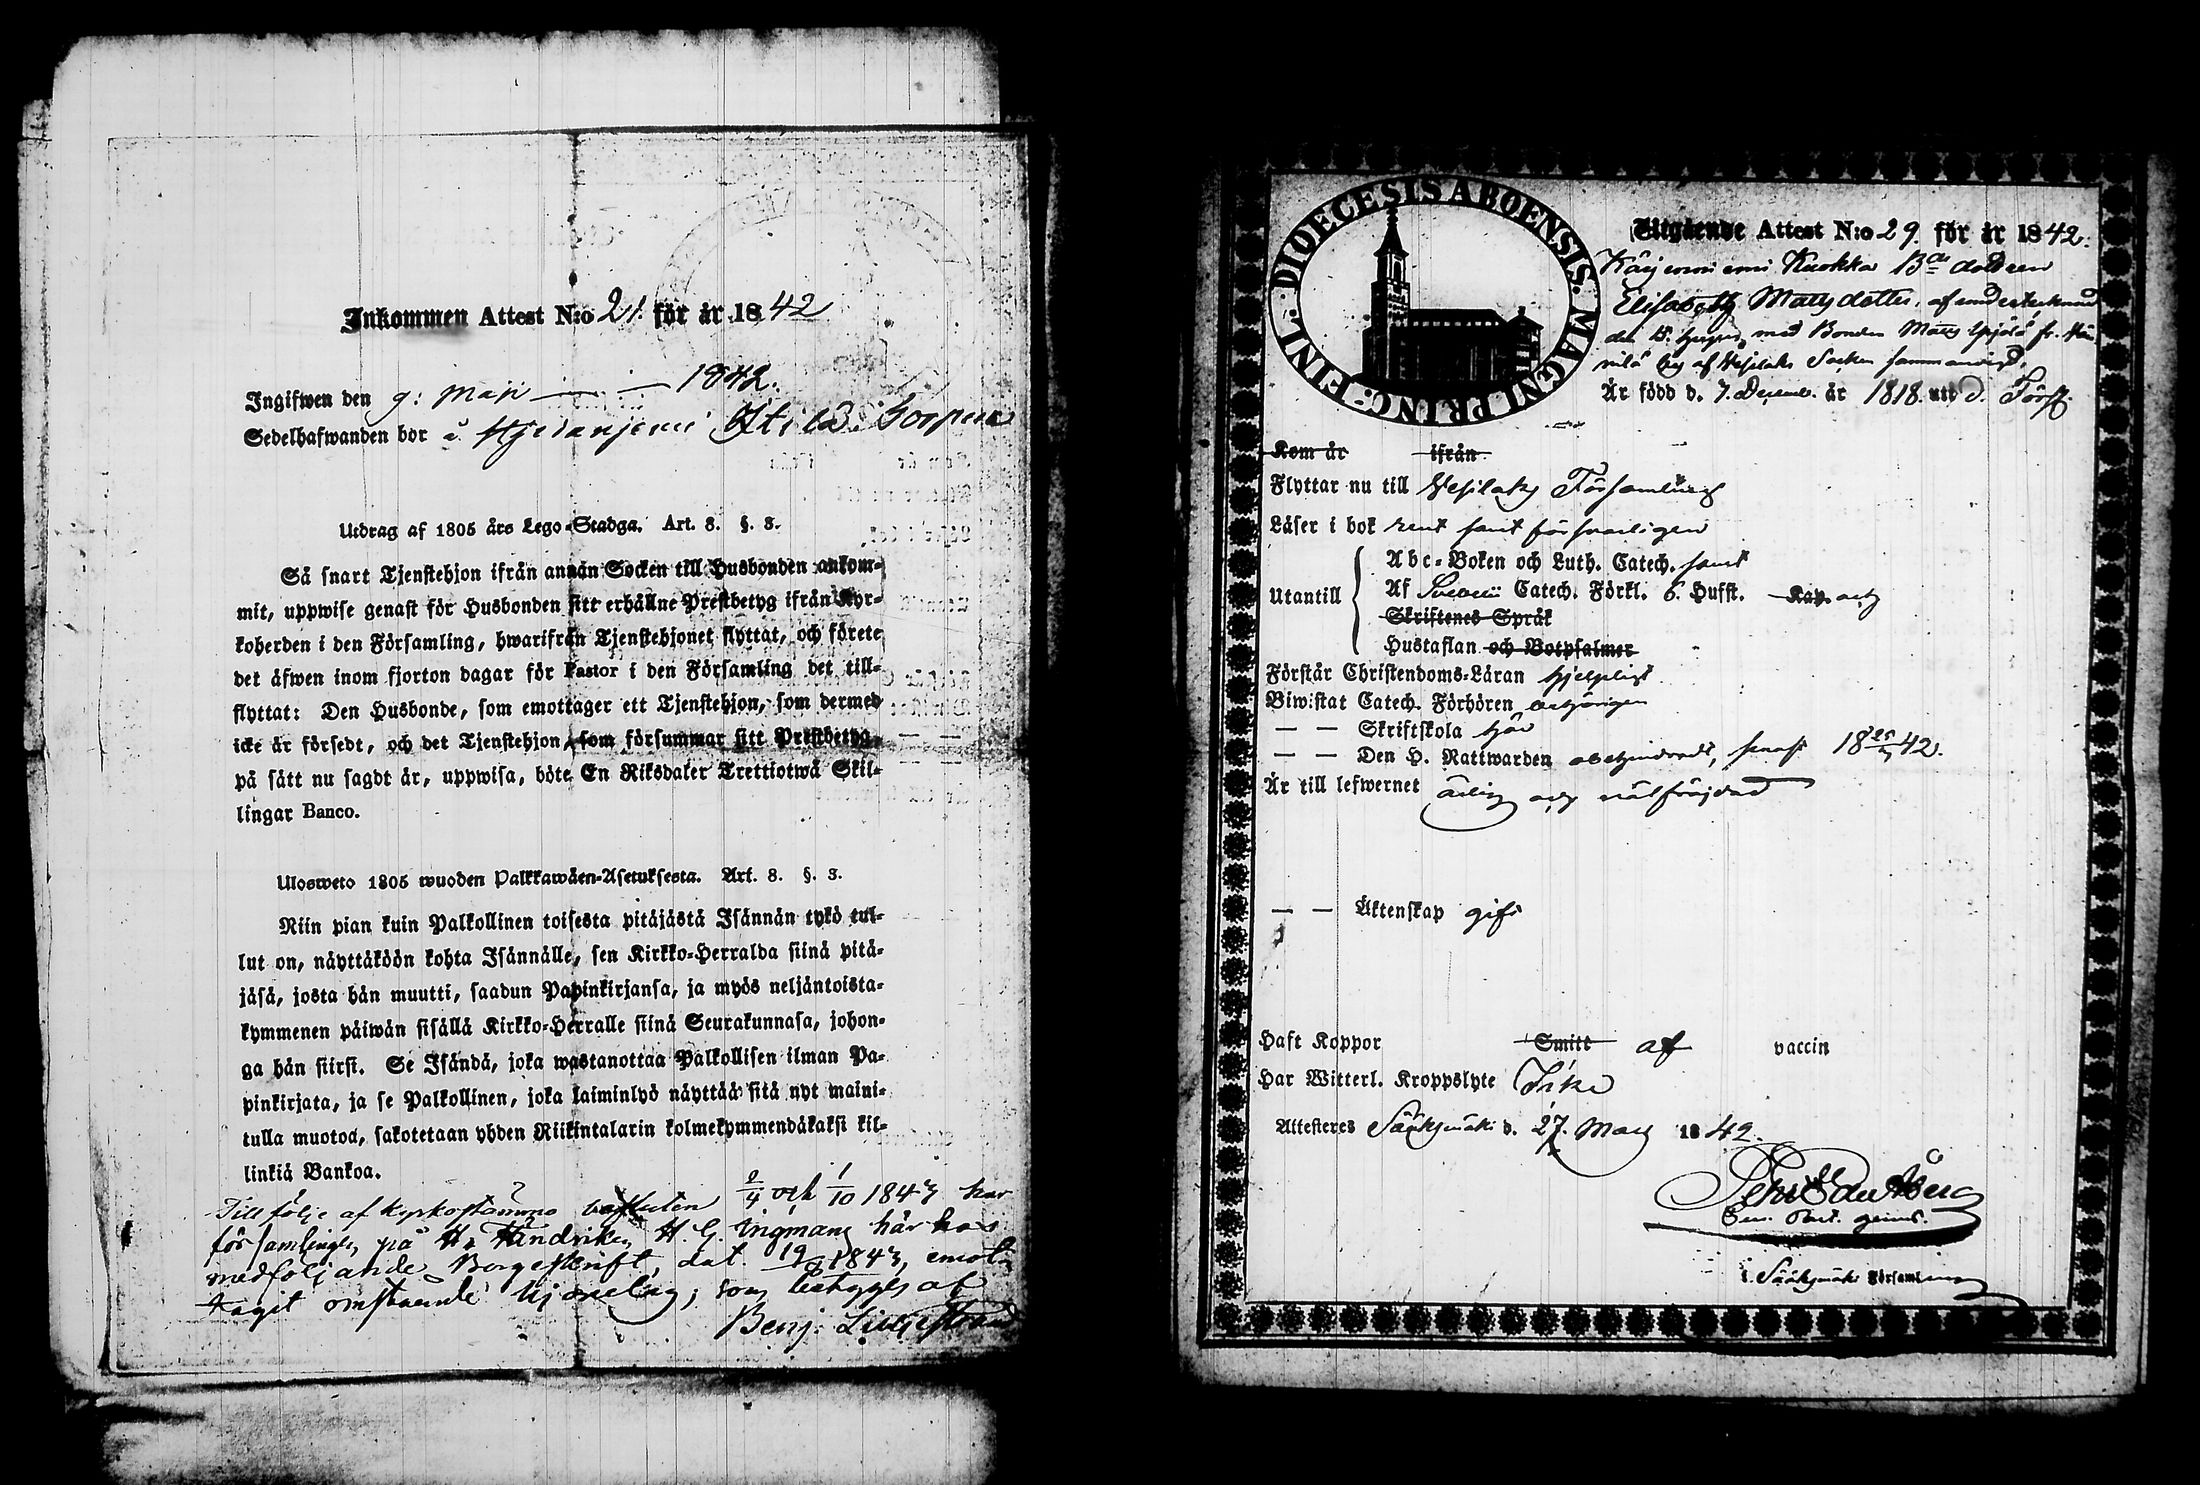 Inkommen Attest N:o 21. för år 1842
Ingifwen den 9: Maji — — 1842.
Sedelhafwanden bor å
Utdrag af 1805 års Lego-Stadga. Art. 8. §. 3.
Så snart Tjenstehjon ifrån annan Socken till Husbonden ankom-
mit, uppwise genast för Husbonden sitt erhållne Prestbetyg ifrån Kyr-
koherden i den Församling, hwarifrån Tjenstehjonet flyttat, och förete
det äfwen inom fjorton dagar för Pastor i den Församling det till-
flyttat: Den Husbonde, som emottager ett Tjenstehjon, som dermed
icke är försedt, och det Tjenstehjon, som försummar sitt Prestbetyg,
på sätt nu sagdt är, uppwisa, böte En Riksdaler Trettiotwå Skil-
lingar Banco.
Ulosweto 1805 wuoden Palkkawäen-Asetuksesta. Art. 8. §. 3.
Niin pian kuin Palkollinen toisesta pitäjästä Isännän tykö tul-
lut on, näyttäköön kohta Isännälle, sen Kirkko-Herralda siinä pitä-
jäsä, josta hän muutti, saadun Papinkirjansa, ja myös neljäntoista-
kymmenen päiwän sisällä Kirkko-Herralle siinä Seurakunnasa, johon-
ga hän siirsi. Se Isändä, joka wastanottaa Palkollisen ilman Pa-
pinkirjata, ja se Palkollinen, joka laiminlyö näyttää sitä nyt maini-
tulla muotoa, sakotetaan yhden Riikintalarin kolmekymmendäkaksi kil-
linkiä Bankoa.
Till följe af kyrkostämmo besluten 2/4 och 1/10 1843 har
församlingen på H. G. Ingmans här hos
medföljande Borgeskrift, dat. 1843, emot-
tagit omstående som betygas af
Benj.
DIOECESIS ABOENSIS. MAGNI PRINC: FINL.
Utgående Attest N:o 29. för år 1842.
Kuokka Bde dottren
Elisabeth Matsdotter,
med Bonden Matts fr.
by af Vesilaks Socken
Är född d. 7. Decemb. år 1818. uti d. Förs.
Kom år ifrån
Flyttar nu till Vesilaks Församling
Läser i bok rent samt försvarligen
Utantill
Abc-Boken och Luth. Catech. samt
Af Svebelii Catech. Förkl. 6. Hufst. Kap. och
Skriftenes Språk
Hustaflan och Botpsalmer
Förstår Christendoms-Läran hjelpligt
Biwistat Catech. Förhören
— — Skriftskola här
— — Den H. Nattwarden obehindradt, senast 18 42.
Är till lefwernet ärlig och välfräjdad
— — Äktenskap gift
Haft Koppor Smitt af vaccin
Har Witterl. Kroppslyte Icke
Attesteres Sääksmäki d. 27. Mars 1842.
i Sääksmäki Församling